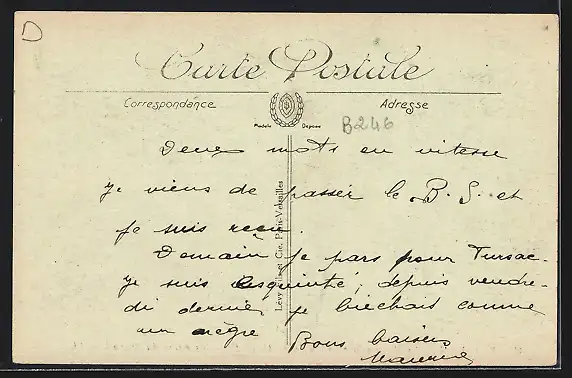 D
Carte Postale
Correspondance
Adresse
Modèle Déposé
B246
Lévy Fils et Cie, Paris-Versailles
Deux mots en vitesse
je viens de passer le B. S. et
je suis reçu.
Demain je pars pour Tursac.
je suis esquinté, depuis vendre-
di dernier je biechais comme
un nègre
Bons baisers